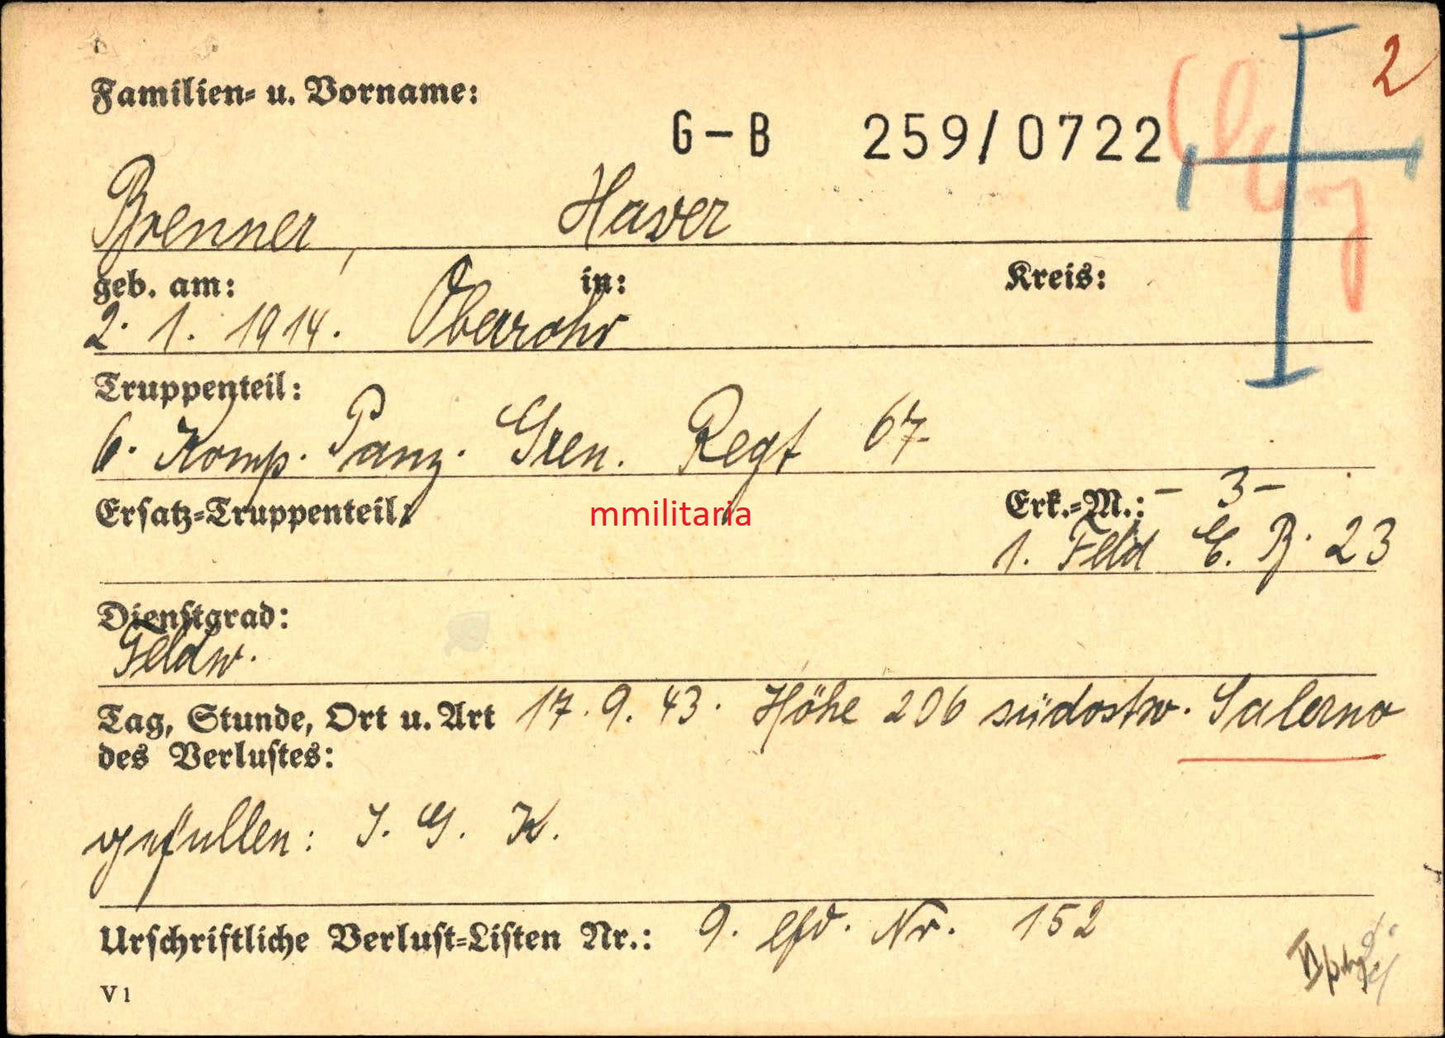 2
Familien- u. Vorname:
G-B 259/0722
Brenner, Xaver
geb. am: in: Kreis:
2. 1. 1914. Oberrohr
Truppenteil:
6. Komp. Panz. Gren. Regt 67
Ersatz-Truppenteil: Erk.-M.: - 3 -
mmilitaria
1. Feld E. B. 23
Dienstgrad:
Feldw.
Tag, Stunde, Ort u. Art 17. 9. 43. Höhe 206 südostw. Salerno
des Verlustes:
gefallen: I. G. K.
Urschriftliche Verlust-Listen Nr.: 9. lfd. Nr. 152
V 1